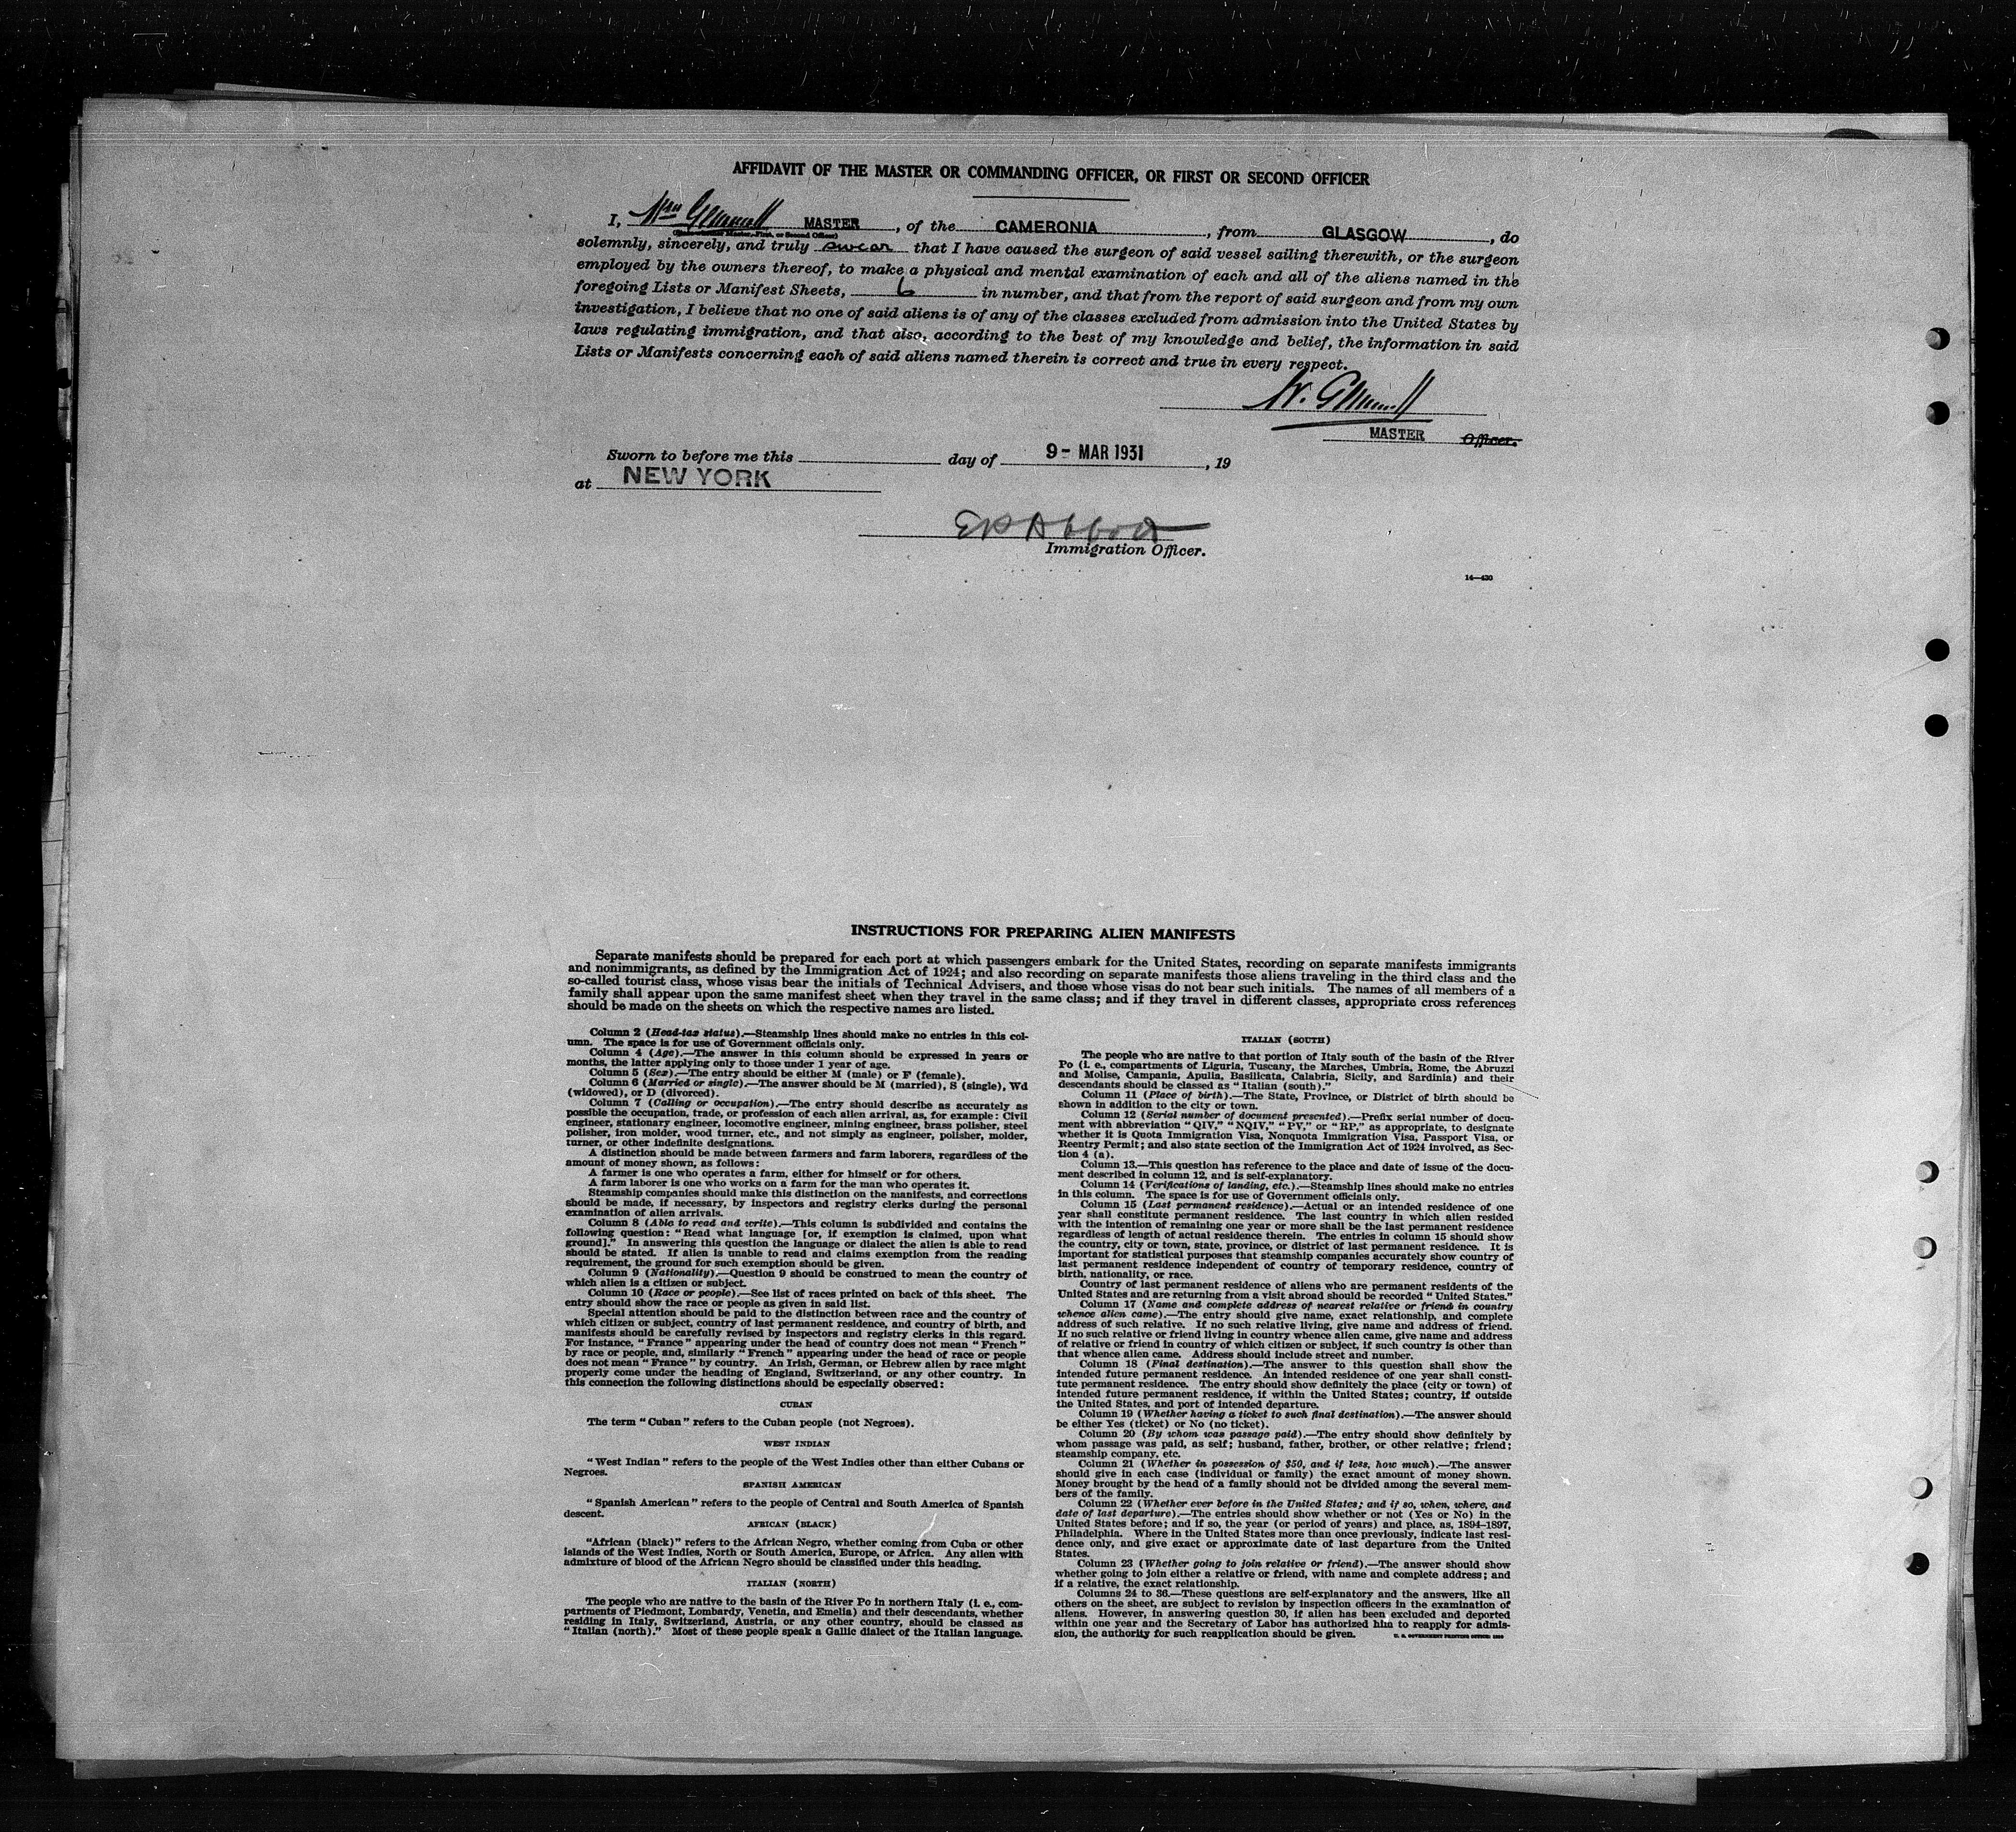 AFFIDAVIT OF THE MASTER OR COMMANDING OFFICER, OR FIRST OR SECOND OFFICER
I, Wm MASTER, of the CAMERONIA, from GLASGOW, do
solemnly, sincerely, and truly swear that I have caused the surgeon of said vessel sailing therewith, or the surgeon
employed by the owners thereof, to make a physical and mental examination of each and all of the aliens named in the
foregoing Lists or Manifest Sheets, 6 in number, and that from the report of said surgeon and from my own
investigation, I believe that no one of said aliens is of any of the classes excluded from admission into the United States by
laws regulating immigration, and that also, according to the best of my knowledge and belief, the information in said
Lists or Manifests concerning each of said aliens named therein is correct and true in every respect.
W.
MASTER Officer.
Sworn to before me this day of 9- MAR 1931, 19
at NEW YORK
Immigration Officer.
14—430
INSTRUCTIONS FOR PREPARING ALIEN MANIFESTS
Separate manifests should be prepared for each port at which passengers embark for the United States, recording on separate manifests immigrants
and nonimmigrants, as defined by the Immigration Act of 1924; and also recording on separate manifests those aliens traveling in the third class and the
so-called tourist class, whose visas bear the initials of Technical Advisers, and those whose visas do not bear such initials. The names of all members of a
family shall appear upon the same manifest sheet when they travel in the same class; and if they travel in different classes, appropriate cross references
should be made on the sheets on which the respective names are listed.
Column 2 (Head-tax status).—Steamship lines should make no entries in this col-
umn. The space is for use of Government officials only.
Column 4 (Age).—The answer in this column should be expressed in years or
months, the latter applying only to those under 1 year of age.
Column 5 (Sex).—The entry should be either M (male) or F (female).
Column 6 (Married or single).—The answer should be M (married), S (single), Wd
(widowed), or D (divorced).
Column 7 (Calling or occupation).—The entry should describe as accurately as
possible the occupation, trade, or profession of each alien arrival, as, for example: Civil
engineer, stationary engineer, locomotive engineer, mining engineer, brass polisher, steel
polisher, iron molder, wood turner, etc., and not simply as engineer, polisher, molder,
turner, or other indefinite designations.
A distinction should be made between farmers and farm laborers, regardless of the
amount of money shown, as follows:
A farmer is one who operates a farm, either for himself or for others.
A farm laborer is one who works on a farm for the man who operates it.
Steamship companies should make this distinction on the manifests, and corrections
should be made, if necessary, by inspectors and registry clerks during the personal
examination of alien arrivals.
Column 8 (Able to read and write).—This column is subdivided and contains the
following question: "Read what language [or, if exemption is claimed, upon what
ground]." In answering this question the language or dialect the alien is able to read
should be stated. If alien is unable to read and claims exemption from the reading
requirement, the ground for such exemption should be given.
Column 9 (Nationality).—Question 9 should be construed to mean the country of
which alien is a citizen or subject.
Column 10 (Race or people).—See list of races printed on back of this sheet. The
entry should show the race or people as given in said list.
Special attention should be paid to the distinction between race and the country of
which citizen or subject, country of last permanent residence, and country of birth, and
manifests should be carefully revised by inspectors and registry clerks in this regard.
For instance, "France" appearing under the head of country does not mean "French"
by race or people, and, similarly "French" appearing under the head of race or people
does not mean "France" by country. An Irish, German, or Hebrew alien by race might
properly come under the heading of England, Switzerland, or any other country. In
this connection the following distinctions should be especially observed:
CUBAN
The term "Cuban" refers to the Cuban people (not Negroes).
WEST INDIAN
"West Indian" refers to the people of the West Indies other than either Cubans or
Negroes.
SPANISH AMERICAN
"Spanish American" refers to the people of Central and South America of Spanish
descent.
AFRICAN (BLACK)
"African (black)" refers to the African Negro, whether coming from Cuba or other
islands of the West Indies, North or South America, Europe, or Africa. Any alien with
admixture of blood of the African Negro should be classified under this heading.
ITALIAN (NORTH)
The people who are native to the basin of the River Po in northern Italy (i. e., com-
partments of Piedmont, Lombardy, Venetia, and Emelia) and their descendants, whether
residing in Italy, Switzerland, Austria, or any other country, should be classed as
"Italian (north)." Most of these people speak a Gallic dialect of the Italian language.
ITALIAN (SOUTH)
The people who are native to that portion of Italy south of the basin of the River
Po (i. e., compartments of Liguria, Tuscany, the Marches, Umbria, Rome, the Abruzzi
and Molise, Campania, Apulia, Basilicata, Calabria, Sicily, and Sardinia) and their
descendants should be classed as "Italian (south)."
Column 11 (Place of birth).—The State, Province, or District of birth should be
shown in addition to the city or town.
Column 12 (Serial number of document presented).—Prefix serial number of docu-
ment with abbreviation "QIV," "NQIV," "PV," or "RP," as appropriate, to designate
whether it is Quota Immigration Visa, Nonquota Immigration Visa, Passport Visa, or
Reentry Permit; and also state section of the Immigration Act of 1924 involved, as Sec-
tion 4 (a).
Column 13.—This question has reference to the place and date of issue of the docu-
ment described in column 12, and is self-explanatory.
Column 14 (Verifications of landing, etc.).—Steamship lines should make no entries
in this column. The space is for use of Government officials only.
Column 15 (Last permanent residence).—Actual or an intended residence of one
year shall constitute permanent residence. The last country in which alien resided
with the intention of remaining one year or more shall be the last permanent residence
regardless of length of actual residence therein. The entries in column 15 should show
the country, city or town, state, province, or district of last permanent residence. It is
important for statistical purposes that steamship companies accurately show country of
last permanent residence independent of country of temporary residence, country of
birth, nationality, or race.
Country of last permanent residence of aliens who are permanent residents of the
United States and are returning from a visit abroad should be recorded "United States."
Column 17 (Name and complete address of nearest relative or friend in country
whence alien came).—The entry should give name, exact relationship, and complete
address of such relative. If no such relative living, give name and address of friend.
If no such relative or friend living in country whence alien came, give name and address
of relative or friend in country of which citizen or subject, if such country is other than
that whence alien came. Address should include street and number.
Column 18 (Final destination).—The answer to this question shall show the
intended future permanent residence. An intended residence of one year shall consti-
tute permanent residence. The entry should show definitely the place (city or town) of
intended future permanent residence, if within the United States; country, if outside
the United States, and port of intended departure.
Column 19 (Whether having a ticket to such final destination).—The answer should
be either Yes (ticket) or No (no ticket).
Column 20 (By whom was passage paid).—The entry should show definitely by
whom passage was paid, as self; husband, father, brother, or other relative; friend;
steamship company, etc.
Column 21 (Whether in possession of $50, and if less, how much).—The answer
should give in each case (individual or family) the exact amount of money shown.
Money brought by the head of a family should not be divided among the several mem-
bers of the family.
Column 22 (Whether ever before in the United States; and if so, when, where, and
date of last departure).—The entries should show whether or not (Yes or No) in the
United States before; and if so, the year (or period of years) and place, as, 1894–1897,
Philadelphia. Where in the United States more than once previously, indicate last resi-
dence only, and give exact or approximate date of last departure from the United
States.
Column 23 (Whether going to join relative or friend).—The answer should show
whether going to join either a relative or friend, with name and complete address; and
if a relative, the exact relationship.
Columns 24 to 36.—These questions are self-explanatory and the answers, like all
others on the sheet, are subject to revision by inspection officers in the examination of
aliens. However, in answering question 30, if alien has been excluded and deported
within one year and the Secretary of Labor has authorized him to reapply for admis-
sion, the authority for such reapplication should be given.
U. S. GOVERNMENT PRINTING OFFICE